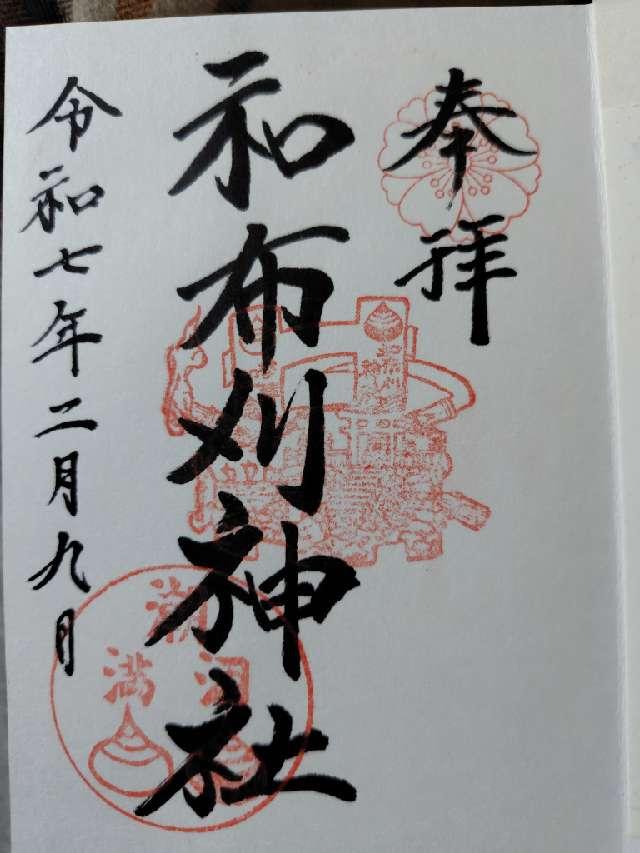 奉拝
和布刈神社
令和七年二月九日
潮
満